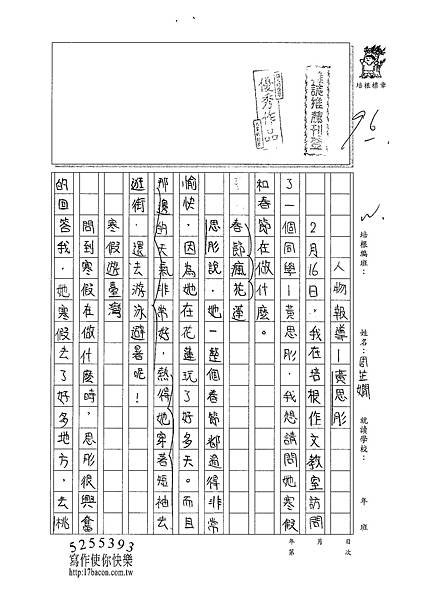 優秀作品
謹推薦刊登
培根標章
96
培根編班：
姓名：周芷嫻
就讀學校：
年 班
人物報導—黃思彤
2月16日，我在培根作文教室訪問
了一個同學—黃思彤，我想請問她寒假
和春節在做什麼。
春節瘋花蓮
思彤說，她一整個春節都過得非常
愉快，因為她在花蓮玩了好多天。而且
那邊的天氣非常好，熱得她穿著短袖去
逛街，還去游泳避暑呢！
寒假遊臺灣
問到寒假在做什麼時，思彤很興奮
的回答我，她寒假去了好多地方，去桃
年 月 日
第 次
5255393
寫作使你快樂
http://17bacon.com.tw